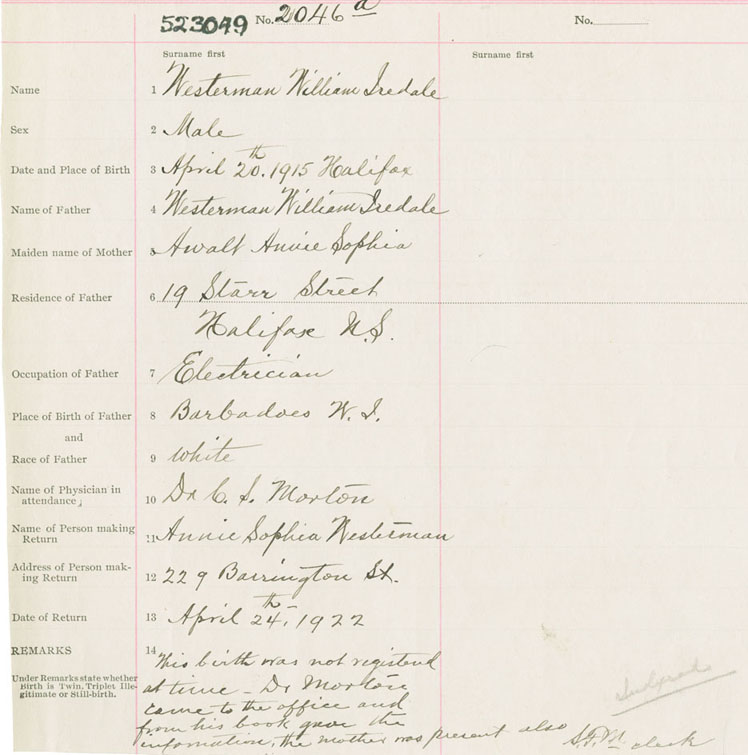 523049 No. 2046 a No.
Surname first Surname first
Name 1 Westerman William Iredale
Sex 2 Male
Date and Place of Birth 3 April 20th. 1915 Halifax
Name of Father 4 Westerman William Iredale
Maiden name of Mother 5 Awalt Annie Sophia
Residence of Father 6 19 Starr Street
Halifax N.S.
Occupation of Father 7 Electrician
Place of Birth of Father 8 Barbadoes W. I.
and
Race of Father 9 White
Name of Physician in
attendance 10 Dr C. S. Morton
Name of Person making
Return 11 Annie Sophia Westerman
Address of Person mak-
ing Return 12 229 Barrington St.
Date of Return 13 April 24th, 1922
REMARKS 14
Under Remarks state whether
Birth is Twin, Triplet Ille-
gitimate or Still-birth.
This birth was not registered
at time - Dr Morton
came to the office and
from his book gave the
information, the mother was present also
clerk